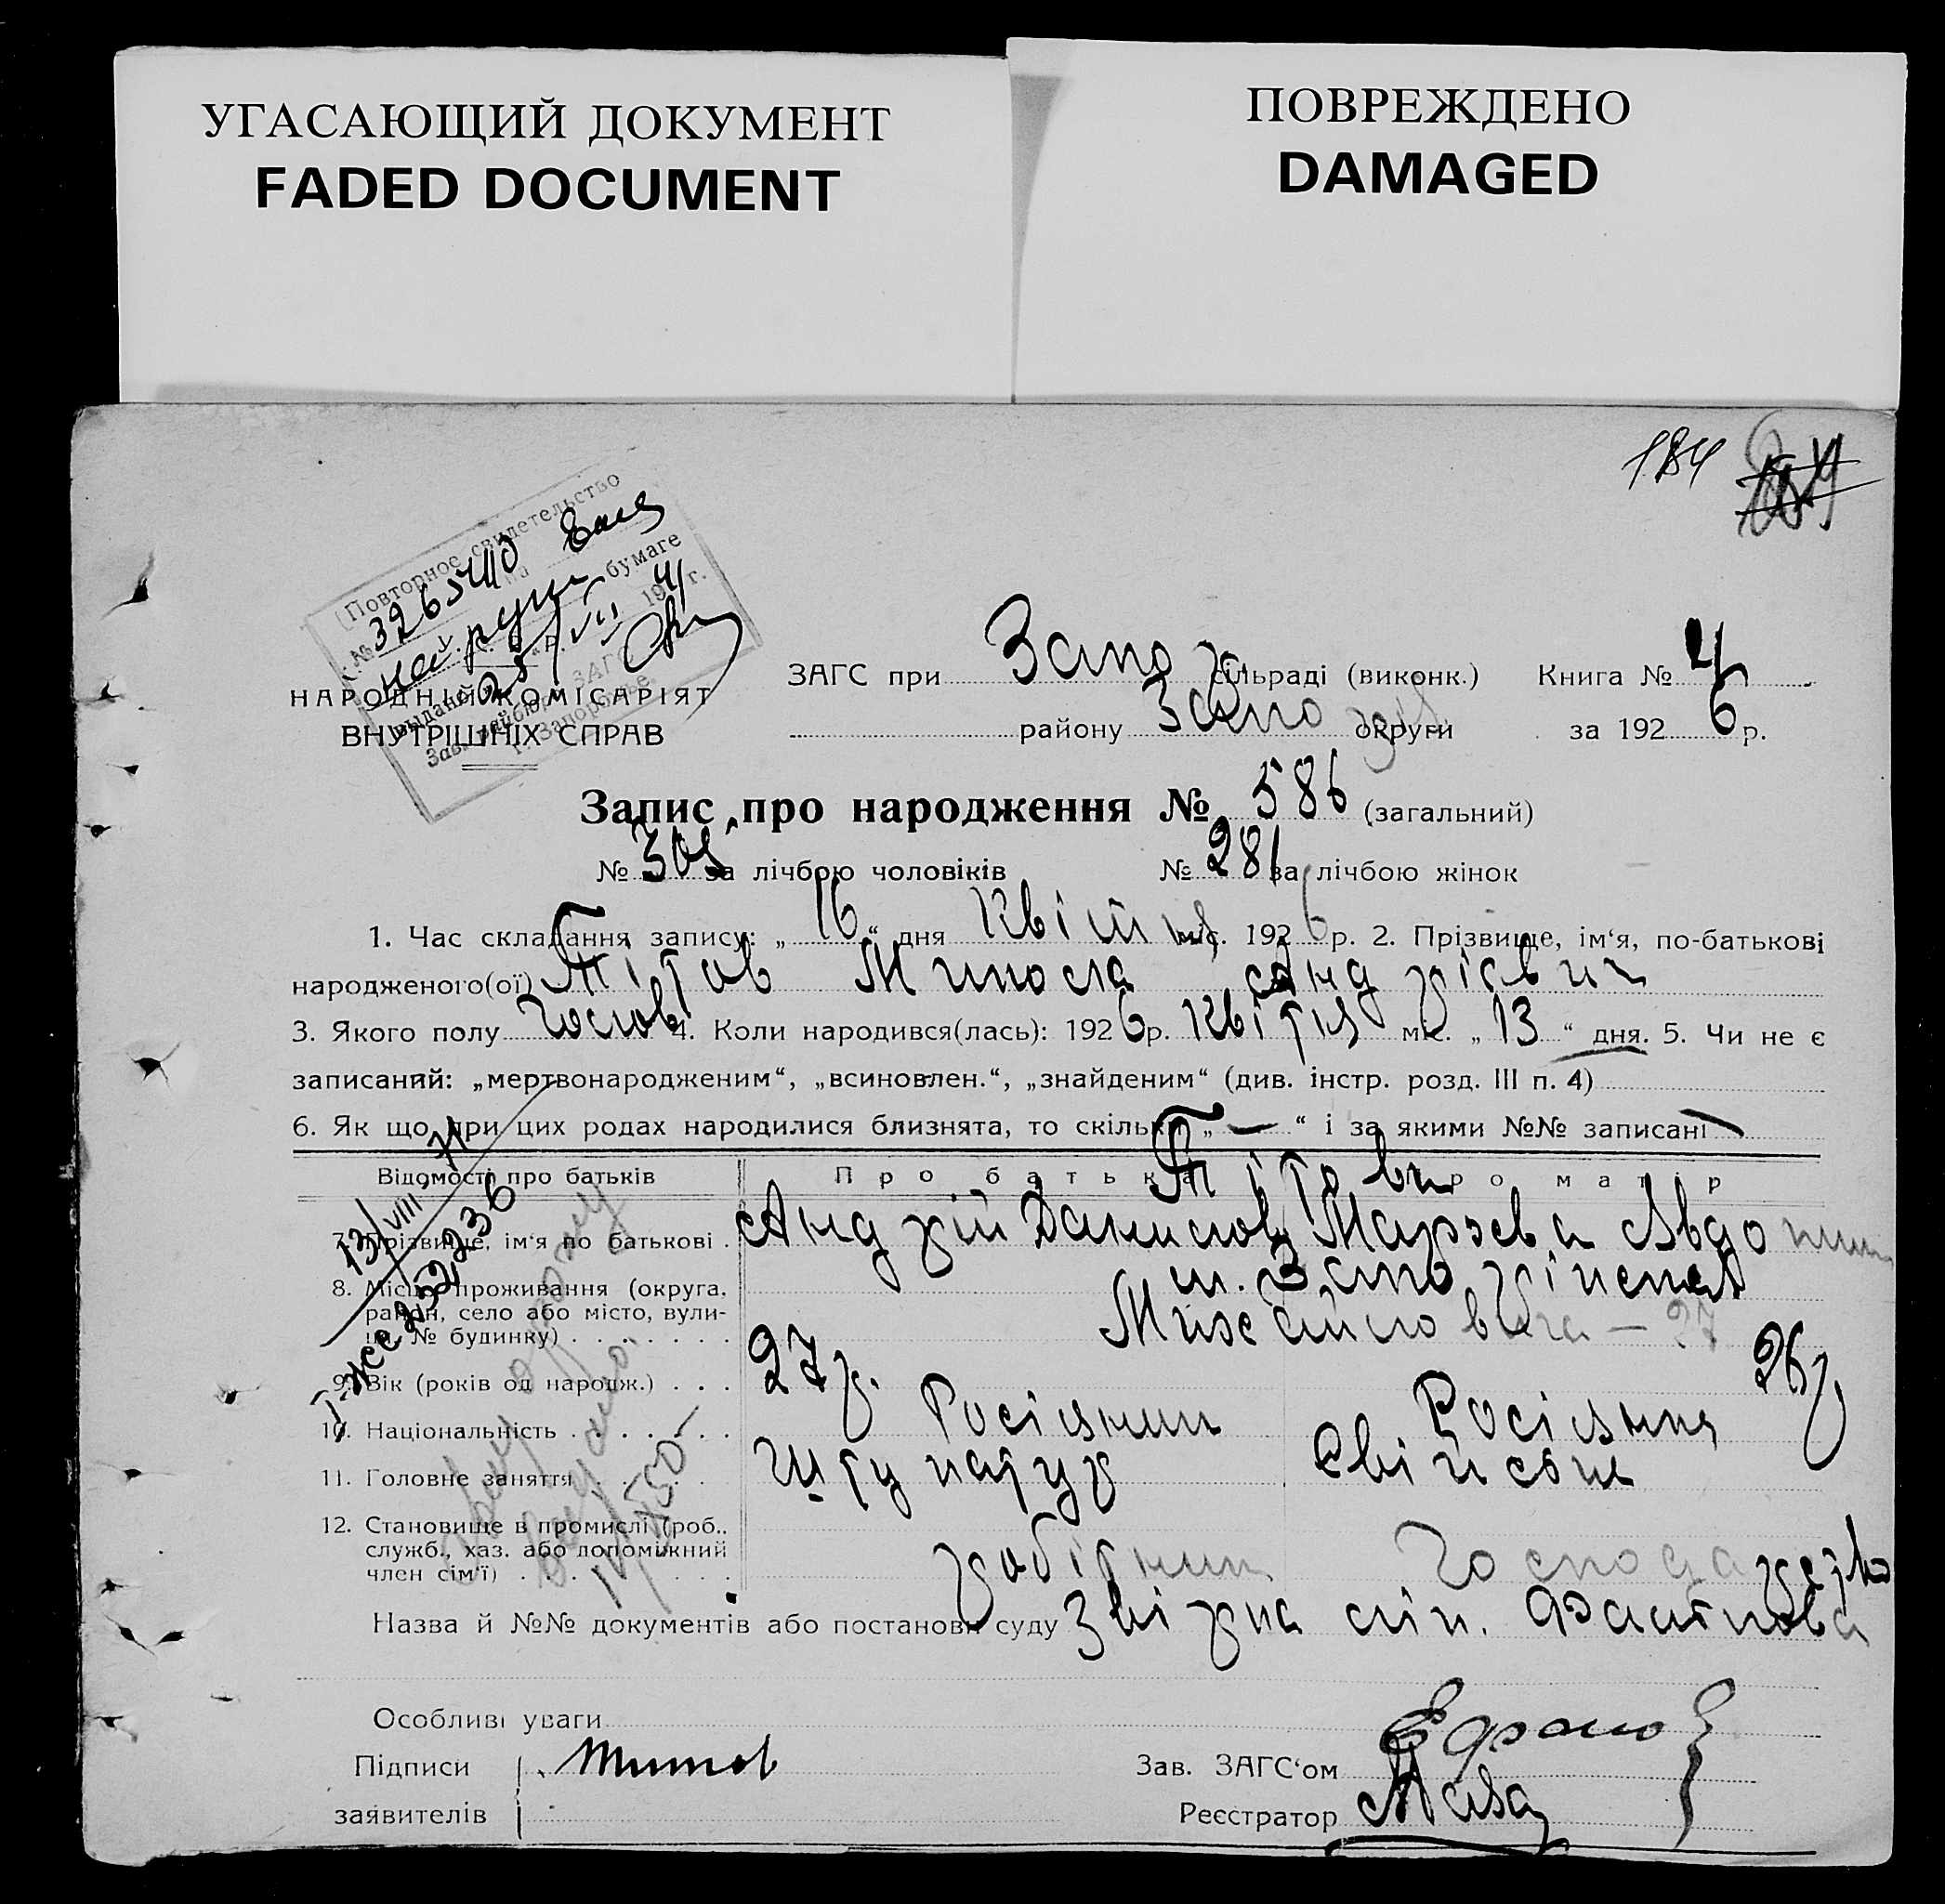 УГАСАЮЩИЙ ДОКУМЕНТ
FADED DOCUMENT
ПОВРЕЖДЕНО
DAMAGED
184
Повторное свидетельство
на бумаге
№ 3265410
на руки
выдано 25/VII 1941 г.
Зав. Райбюро ЗАГС
г. Запорожье.
НАРОДНІЙ КОМІСАРІЯТ
ВНУТРІШНІХ СПРАВ
ЗАГС при Запор сільраді (виконк.) Книга № 4
району Запо округи за 1926 р.
Запис про народження № 586 (загальний)
№ 305 за лічбою чоловіків № 281 за лічбою жінок
1. Час складання запису: „16“ дня Квітня міс. 1926 р. 2. Прізвище, ім‘я, по-батькові
народженого(ої) Тітов Микола Андрієвич
3. Якого полу Чолов 4. Коли народився(лась): 1926 р. Квітня міс. „13“ дня. 5. Чи не є
записаний: „мертвонародженим“, „всиновлен.“, „знайденим“ (див. інстр. розд. III п. 4)
6. Як що при цих родах народилися близнята, то скільки „—“ і за якими №№ записані —
Відомості про батьків Про батька Про матір
Тітови
7. Прізвище, ім‘я по батькові . Андрій Данилов Марфа Авдо
8. Місце проживання (округа, м. Запоріжжя
район, село або місто, вули-
ця, № будинку) . . . . . . . Михайлов — 27
9. Вік (років од народж.) . . . 27 р. 26 р.
10. Національність . . . . . . . Росіянин Росіянка
11. Головне заняття . . . . . . штукатур
12. Становище в промислі (роб.,
служб., хаз. або допоміжний
член сім‘ї) . . . . . . . . . робітник Господарство
Назва й №№ документів або постанови суду
Особливі уваги
Підписи Титов Зав. ЗАГС‘ом
заявителів Реєстратор
13/VIII 71
I-ЖС 232236